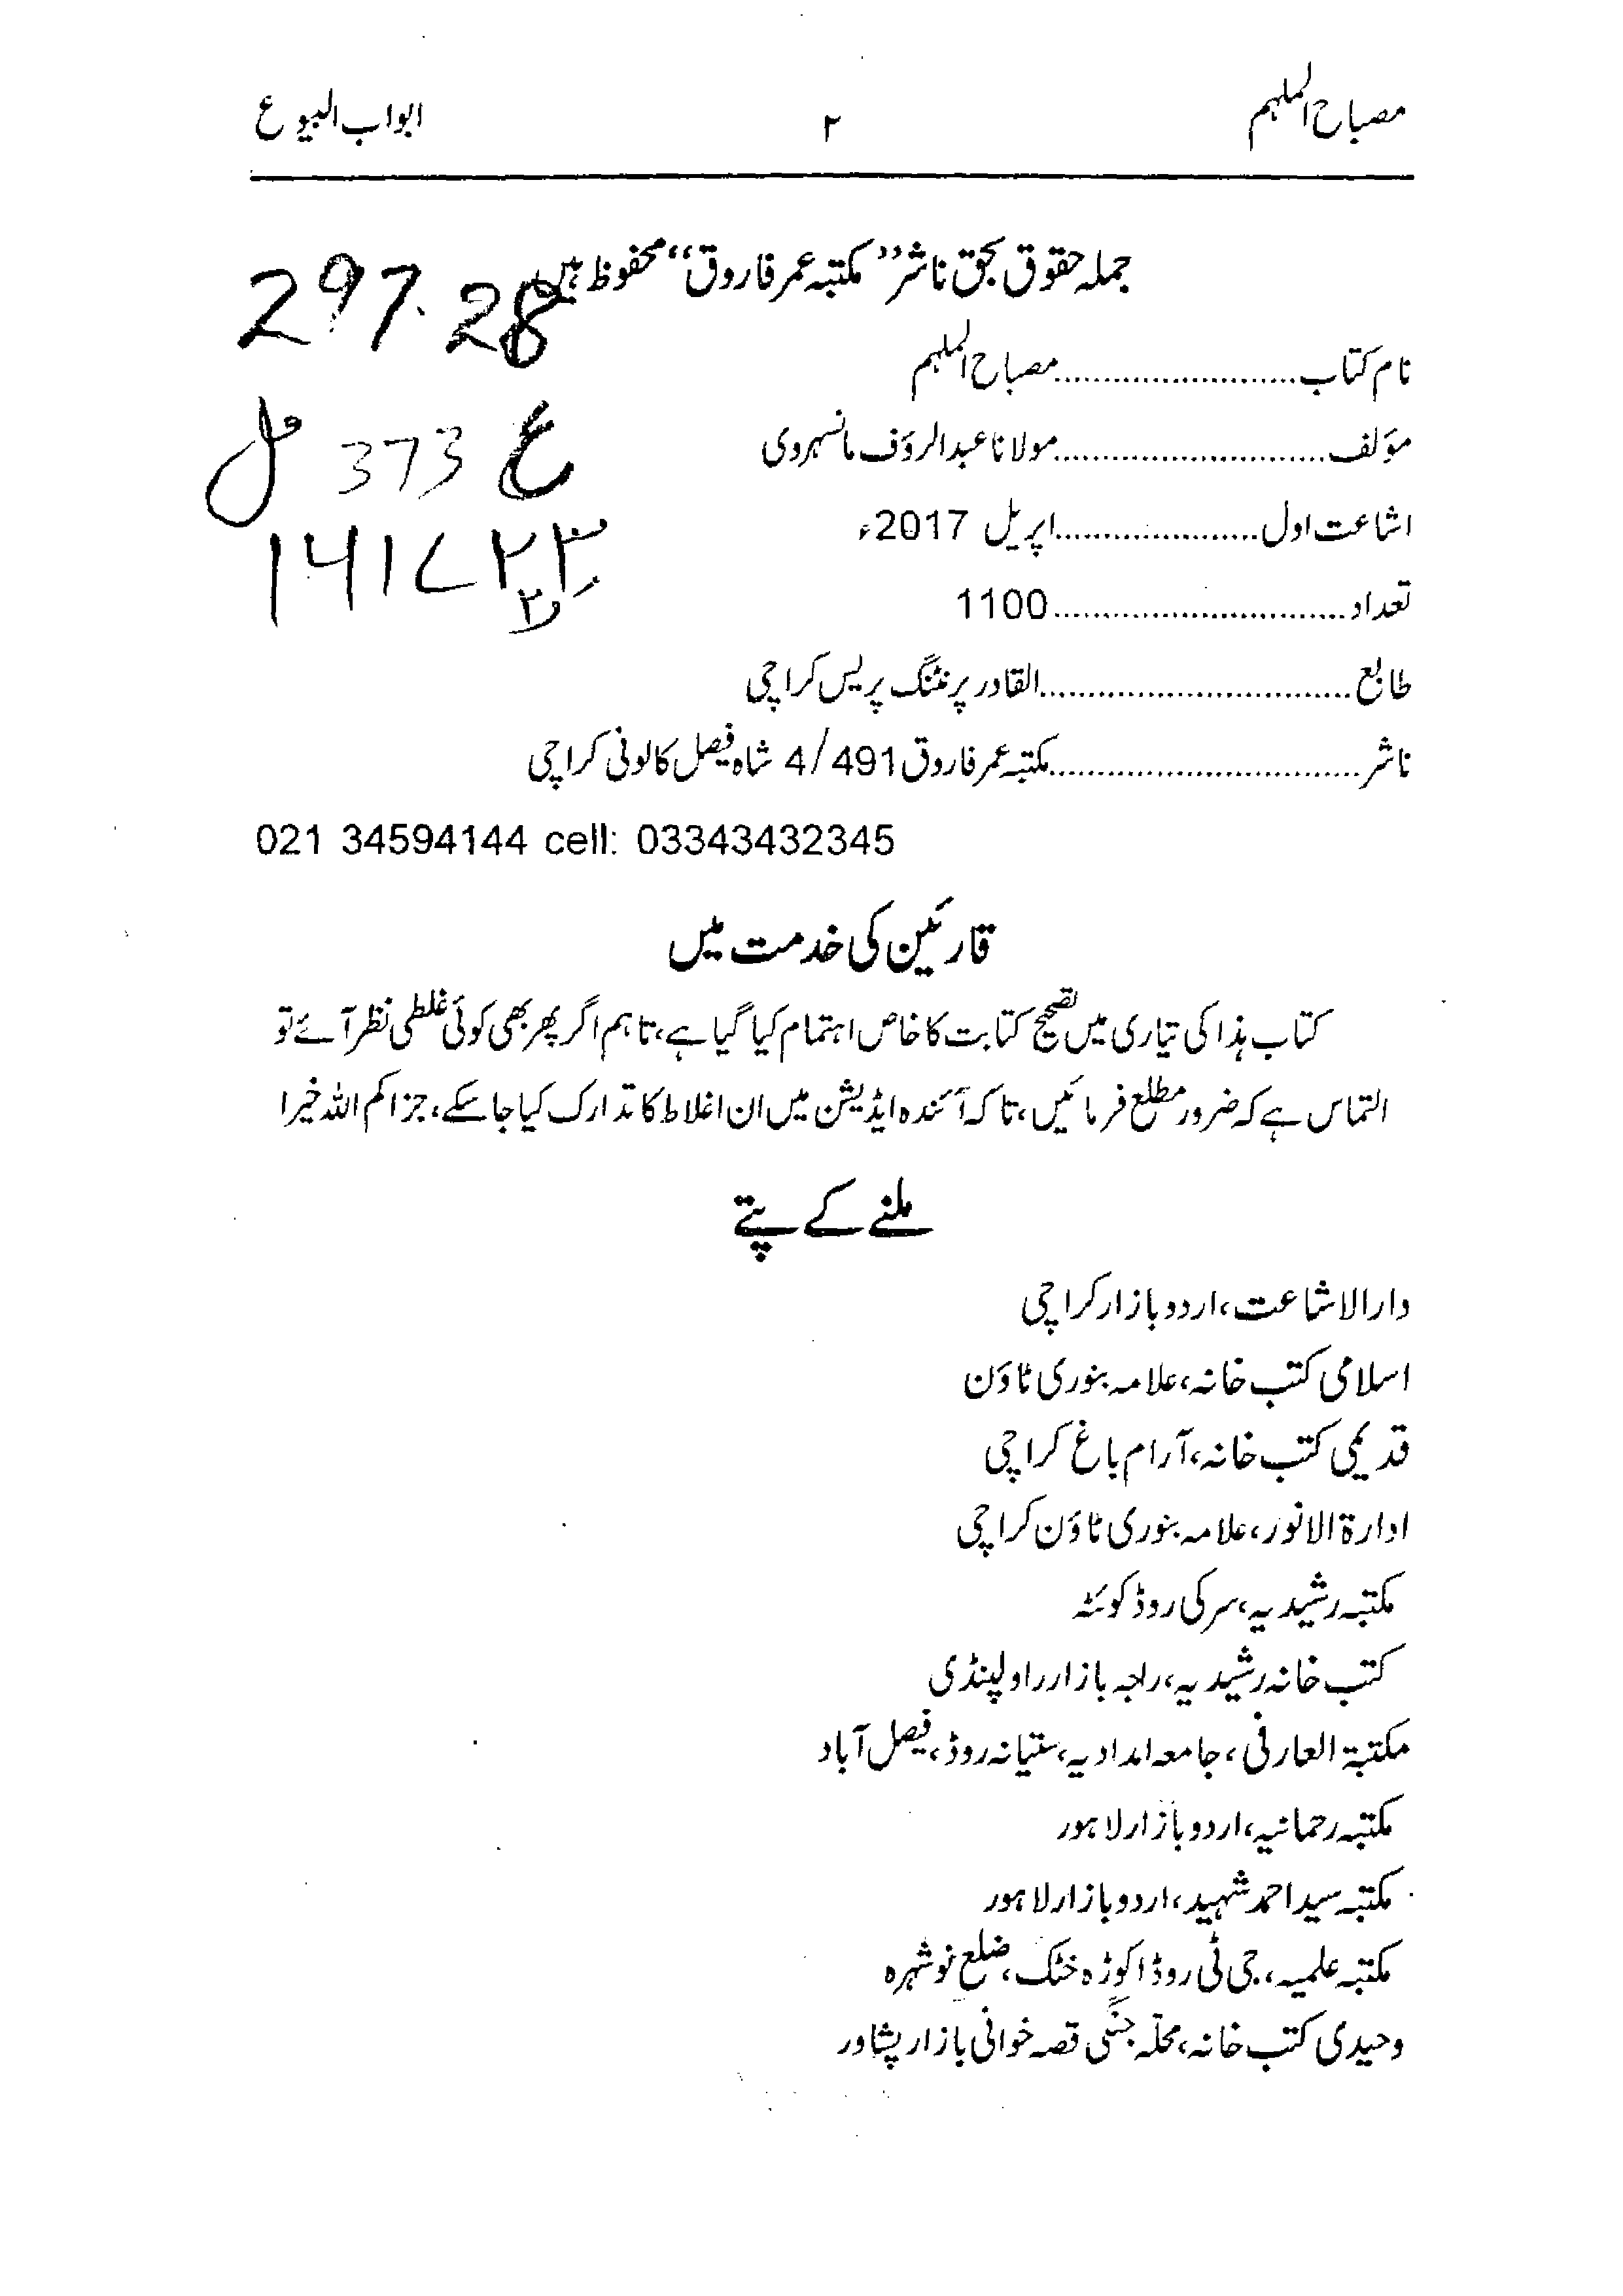 مصباح الملہم ۲ ابواب البیوع
جملہ حقوق بحق ناشر ”مکتبہ عمر فاروق“ محفوظ ہیں
297.28
نام کتاب........................مصباح الملہم
ع 373
مؤلف...........................مولانا عبدالرؤف مانسہروی
اشاعت اول....................اپریل 2017ء
تعداد.............................1100
طابع...............................القادر پرنٹنگ پریس کراچی
ناشر...............................مکتبہ عمر فاروق 4/491 شاہ فیصل کالونی کراچی
021 34594144 cell: 03343432345
قارئین کی خدمت میں
کتاب ہذا کی تیاری میں تصحیح کتابت کا خاص اہتمام کیا گیا ہے، تاہم اگر پھر بھی کوئی غلطی نظر آئے تو
التماس ہے کہ ضرور مطلع فرمائیں، تاکہ آئندہ ایڈیشن میں ان اغلاط کا تدارک کیا جا سکے، جزاکم اللہ خیرا
ملنے کے پتے
دارالاشاعت، اردو بازار کراچی
اسلامی کتب خانہ، علامہ بنوری ٹاؤن
قدیمی کتب خانہ، آرام باغ کراچی
ادارۃ الانور، علامہ بنوری ٹاؤن کراچی
مکتبہ رشیدیہ، سرکی روڈ کوئٹہ
کتب خانہ رشیدیہ، راجہ بازار راولپنڈی
مکتبۃ العارفی، جامعہ امدادیہ، ستیانہ روڈ، فیصل آباد
مکتبہ رحمانیہ، اردو بازار لاہور
مکتبہ سید احمد شہید، اردو بازار لاہور
مکتبہ علمیہ، جی ٹی روڈ اکوڑہ خٹک، ضلع نوشہرہ
وحیدی کتب خانہ، محلّہ جنگی قصہ خوانی بازار پشاور